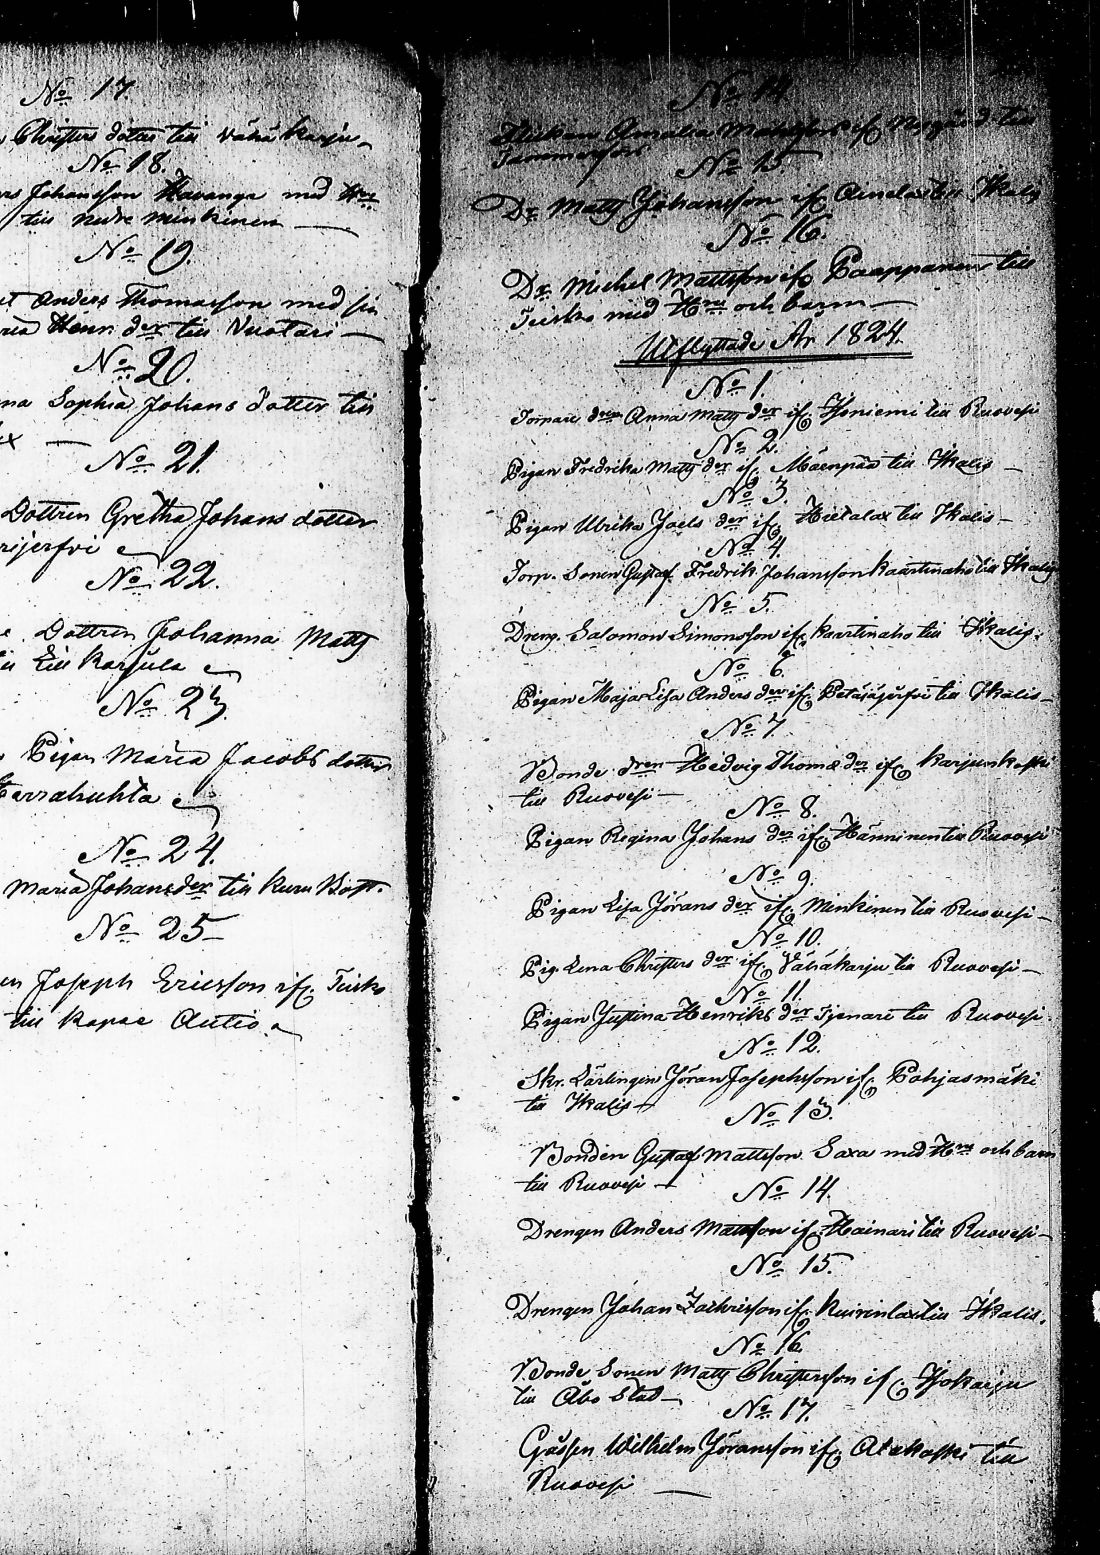 No 17.
Christers dotter till Vähä Karju
No 18.
Johansson Havanga med Hru
till Nedre Minkinen
No 19.
Anders Thomasson med sin
Henr. der till Vuolari
No 20.
Sophia Johans dotter till
No 21.
Dottren Gretha Johans dotter
No 22.
Dottren Johanna Matts
till Karjula
No 23.
Pigan Maria Jacobs dotter
No 24.
Maria Johans der till Kuru Bost.
No 25
Joseph Ericsson if. Teisko
till Kapae Autio
No 14
Amalia if. till
Tammerfors
No 15.
Dr. Matts Johansson if. till Ikalis
No 16.
Dr. Michel Mattsson if. Paappanen till
Teisko med Hru och barn
Utflyttade År 1824.
No 1.
Torpare dren Anna Matts der if. till Ruovesi
No 2.
Pigan Fredrika Matts der if. Mäenpää till Ikalis
No 3.
Pigan Ulrika Joels der if. Hietalax till Ikalis
No 4.
Torp. Sonen Gustaf Fredrik Johansson Kaartinaho till Ikalis
No 5.
Dreng. Salomon Simonsson if. Kaartinaho till Ikalis.
No 6.
Pigan Maja Lisa Anders der if. Petäjäjerfvi till Ikalis
No 7
Bonde dren Hedvig Thomæ der if. Karjunkoski
till Ruovesi
No 8.
Pigan Regina Johans der if. Hänninen till Ruovesi
No 9
Pigan Lisa Jörans der if. Minkinen till Ruovesi
No 10.
Pig. Lena Christers der if. Vähäkarju till Ruovesi
No 11
Pigan Justina Henriks der Tjenare till Ruovesi
No 12.
Skr. Lärlingen Jöran Josephsson if. Pohjasmäki
till Ikalis
No 13.
Bonden Gustaf Mattsson Saxa med Hru och barn
till Ruovesi
No 14.
Drengen Anders Mattsson if. Hainari till Ruovesi
No 15.
Drengen Johan Zachrisson if. Kuivinlax till Ikalis.
No 16.
Bonde Sonen Matts Christersson if. till
till Åbo Stad
No 17.
Gossen Wilhelm Jöransson if. Alakoski till
Ruovesi